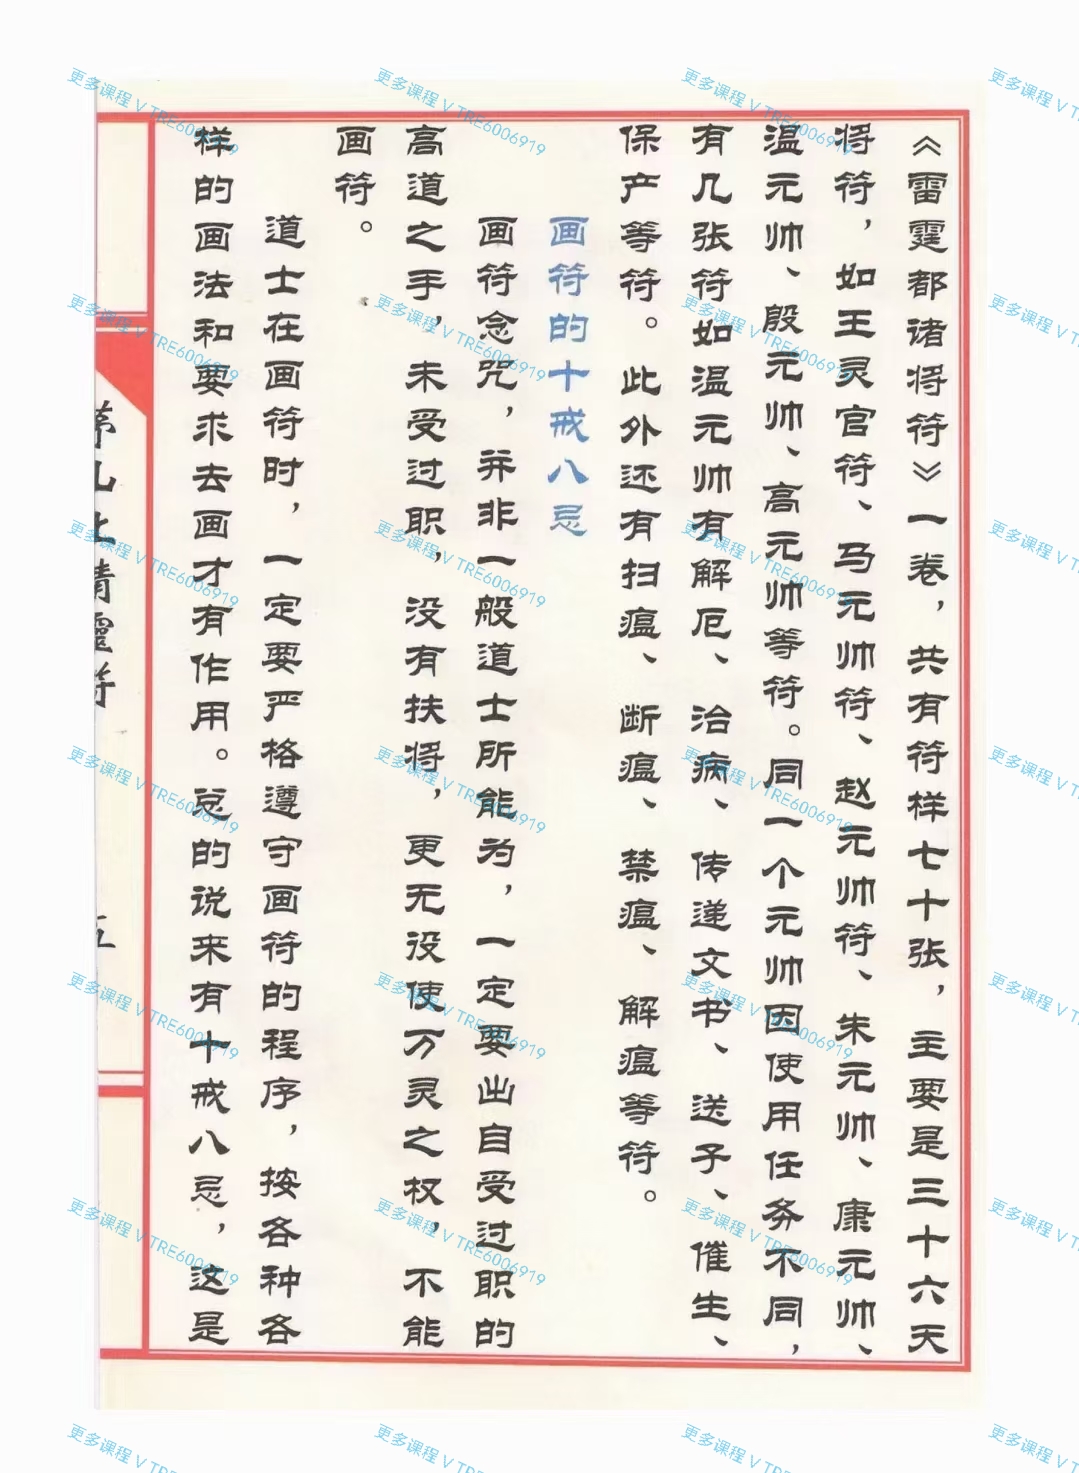 《雷霆都诸将符》一卷，共有符样七十张，主要是三十六天
将符，如王灵官符、马元帅符、赵元帅符、朱元帅、康元帅、
温元帅、殷元帅、高元帅等符。同一个元帅因使用任务不同，
有几张符如温元帅有解厄、治病、传递文书、送子、催生、
保产等符。此外还有扫瘟、断瘟、禁瘟、解瘟等符。
画符的十戒八忌
画符念咒，并非一般道士所能为，一定要出自受过职的
高道之手，未受过职，没有扶将，更无役使万灵之权，不能
画符。
道士在画符时，一定要严格遵守画符的程序，按各种各
样的画法和要求去画才有作用。总的说来有十戒八忌，这是
五
更多课程 V TRE6006919